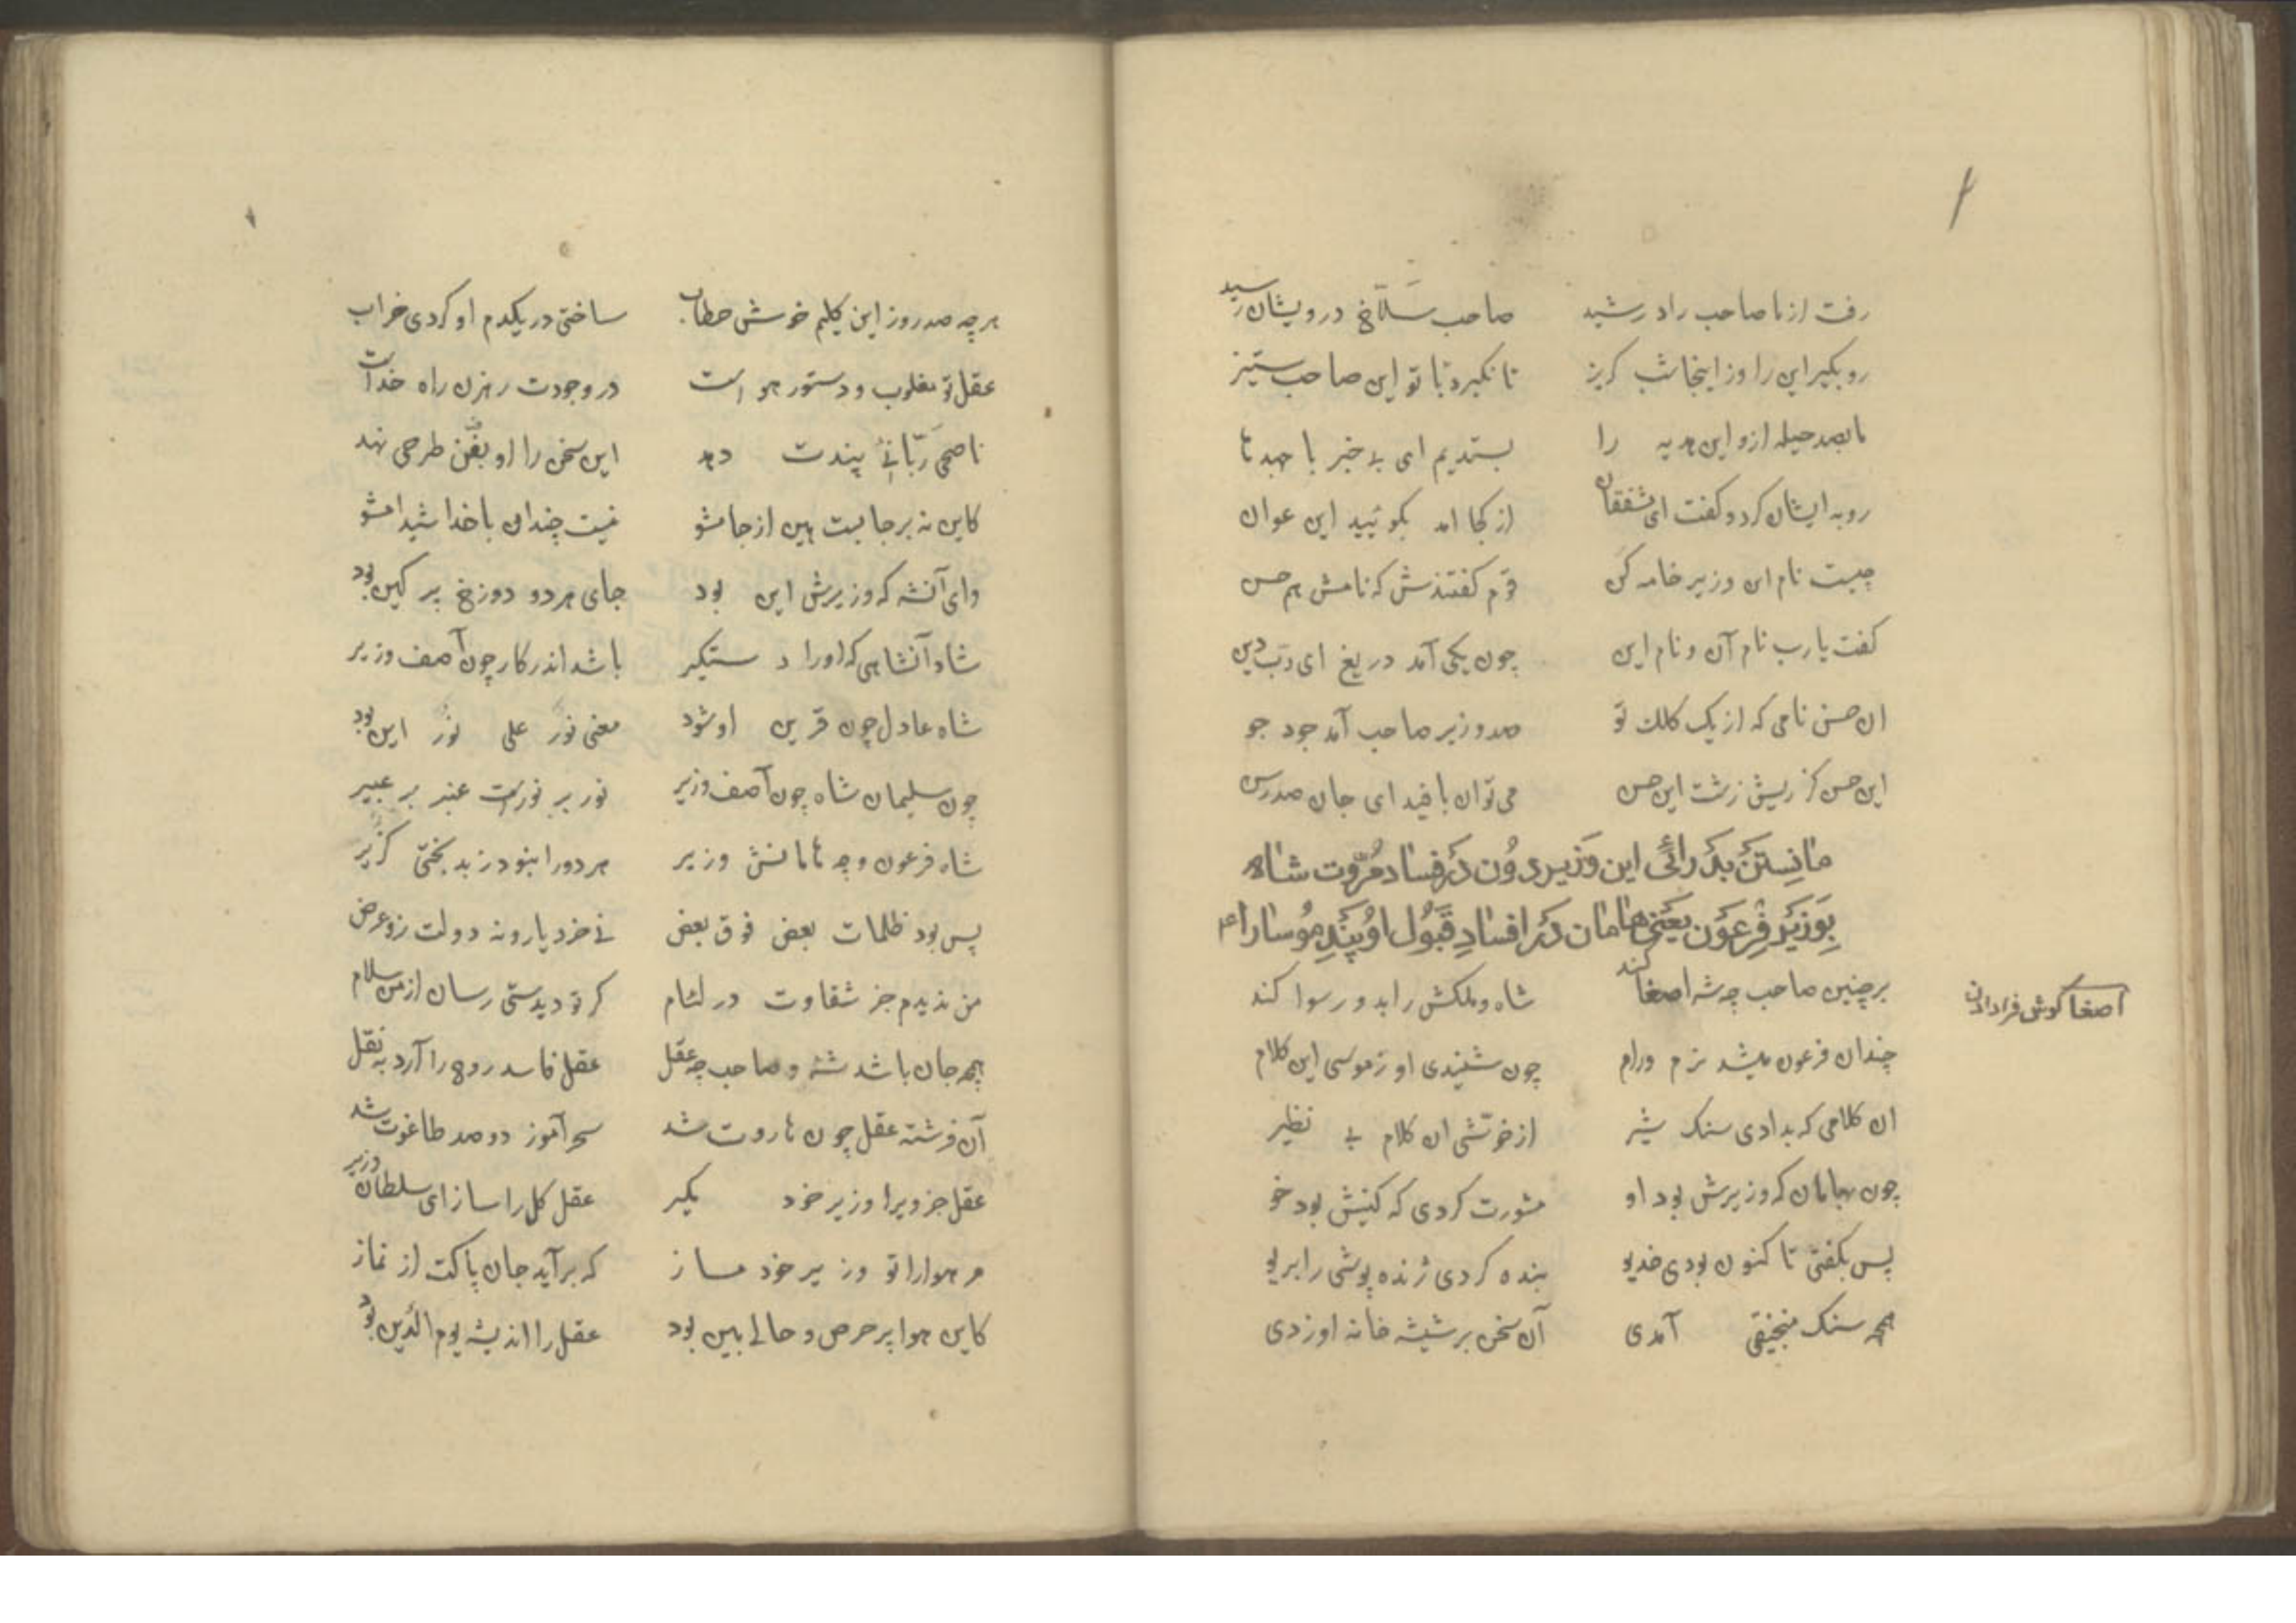 رفت از ما صاحب راد رشید صاحب سلاخ درویشان رسید
رو بگیر این را وز اینجا شب گریز تا نگیرد با تو این صاحب ستیز
ما بصد حیله ازو این هدیه را بستدیم ای بی خبر با جهد ما
رو به ایشان کرد و گفت ای مشفقان از کجا امد بگوئید این عوان
چیست نام این وزیر خامه کن قوم گفتندش که نامش هم حسن
گفت یا رب نام آن و نام این چون یکی آمد دریغ ای رب دین
ان حسن نامی که از یک کلک تو صد وزیر صاحب آمد جود جو
این حسن کز ریش زشت این حسن می توان بافید ای جان صد رسن
مانستن بد رائی این وزیر دون در فساد مروت شاه
بوزیر فرعون یعنی هامان در افساد قبول او پند موسا را عم
بر چنین صاحب چو شه اصغا کند شاه و ملکش را بد و رسوا کند
اصغا گوش فرا دادن
چندان فرعون میشد نرم و رام چون شنیدی او ز موسی این کلام
ان کلامی که بدادی سنک شیر از خوشی ان کلام بی نظیر
چون بهامان که وزیرش بود او مشورت کردی که کینش بود خو
پس بگفتی تا کنون بودی خدیو بنده کردی ژنده پوشی را بریو
همچو سنک منجنیقی آمدی آن سخن بر شیشه خانه او زدی
هر چه صد روز این کلیم خوش خطاب ساختی در یکدم او کردی خراب
عقل تو مغلوب و دستور هواست در وجودت رهزن راه خداست
ناصحی ربانئ پندت دهد این سخن را او بفن طرحی نهد
کاین نه بر جایست هین از جا مشو نیست چندان با خدا شیدا مشو
وای آنشه که وزیرش این بود جای هر دو دوزخ پر کین بود
شاد آنشاهی که اورا دستکیر باشد اندر کار چون آصف وزیر
شاه عادل چون قرین او شود معنی نور علی نور این بود
چون سلیمان شاه چون آصف وزیر نور بر نورست عنبر بر عبیر
شاه فرعون و چو هامانش وزیر هر دو را نبود ز بدبختی گزیر
پس بود ظلمات بعض فوق بعض نی خرد یار و نه دولت روز عرض
من ندیدم جز شقاوت در لئام گر تو دیدستی رسان از من سلام
همچو جان باشد شه و صاحب چو عقل عقل فاسد روح را آرد به نقل
آن فرشته عقل چون هاروت شد سحر آموز دو صد طاغوت شد
عقل جزویرا وزیر خود مگیر عقل کل را ساز ای سلطان وزیر
مر هوا را تو وزیر خود مساز که برآید جان پاکت از نماز
کاین هوا پر حرص و حالی بین بود عقل را اندیشه یوم الدین بود